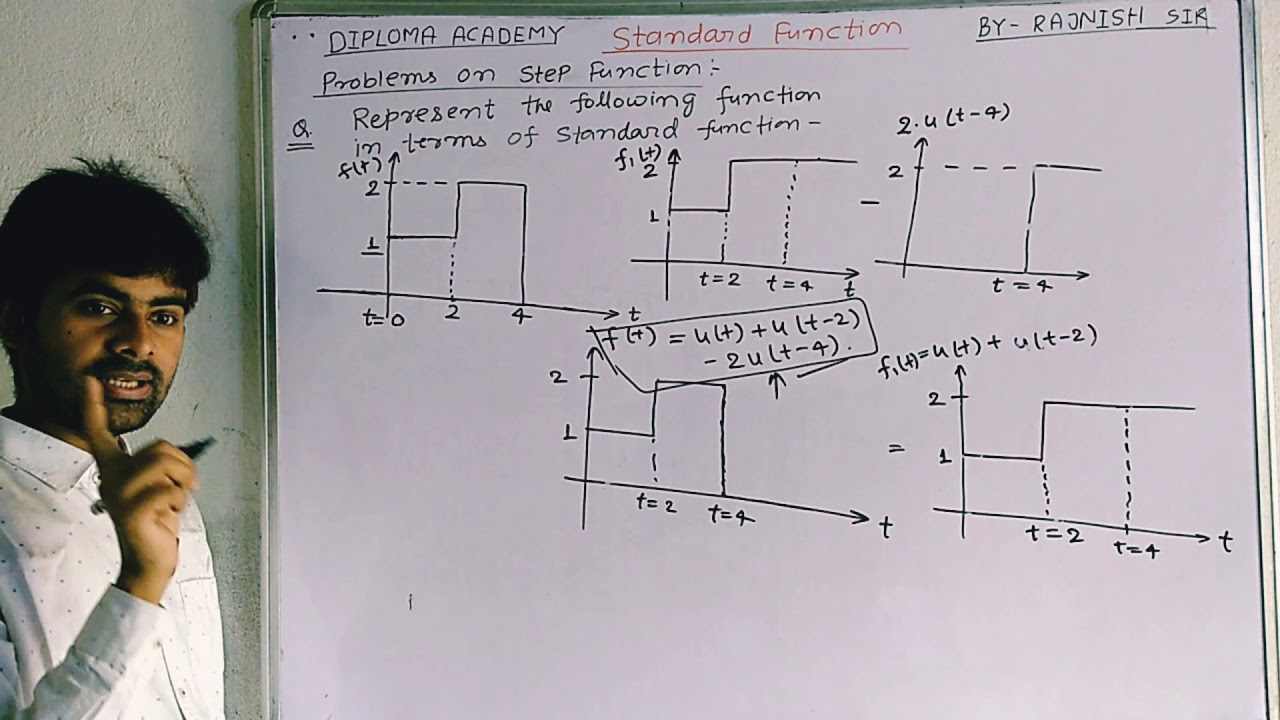 DIPLOMA ACADEMY Standard Function BY- RAJNISH SIR
Problems on Step Function:-
Q. Represent the following function
in terms of standard function -
f(t)
2
1
t=0 2 4 t
f₁(t)
2
1
t=2 t=4 t
-
2.u(t-4)
2
t=4
f(t) = u(t) + u(t-2)
- 2u(t-4).
2
1
t=2 t=4 t
=
f₁(t)=u(t) + u(t-2)
2
1
t=2 t=4 t